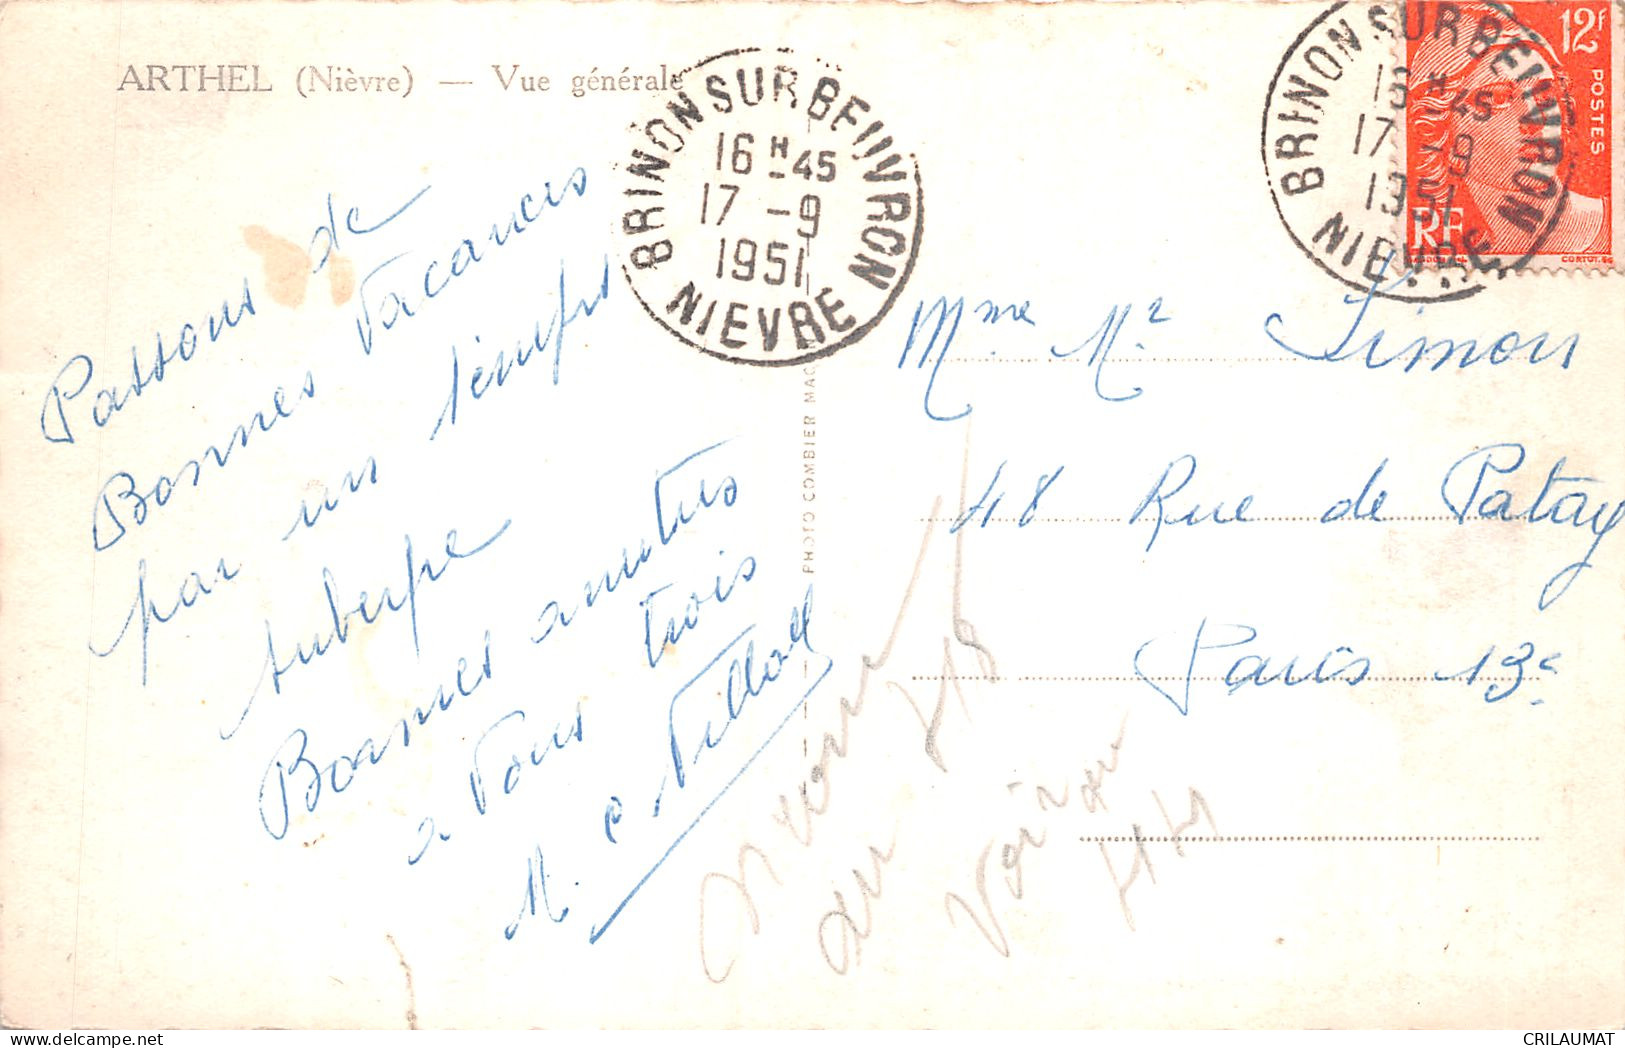 ARTHEL (Nièvre) — Vue générale
BRINON SUR BEUVRON
16 H 45
17 - 9
1951
NIEVRE
BRINON SUR BEUVRON
16 H 45
17 - 9
1951
NIEVRE
12f
POSTES
RF
GANDON
CORTOT
Passons de
Bonnes Vacances
par un temps
Superpe
Bonnes amitiés
a Vous trois
M. e Villoll
PHOTO COMBIER MAC
Mme Mr Simon
48 Rue de Patay
Paris 13e
au 48
Voir au
44
CRILAUMAT